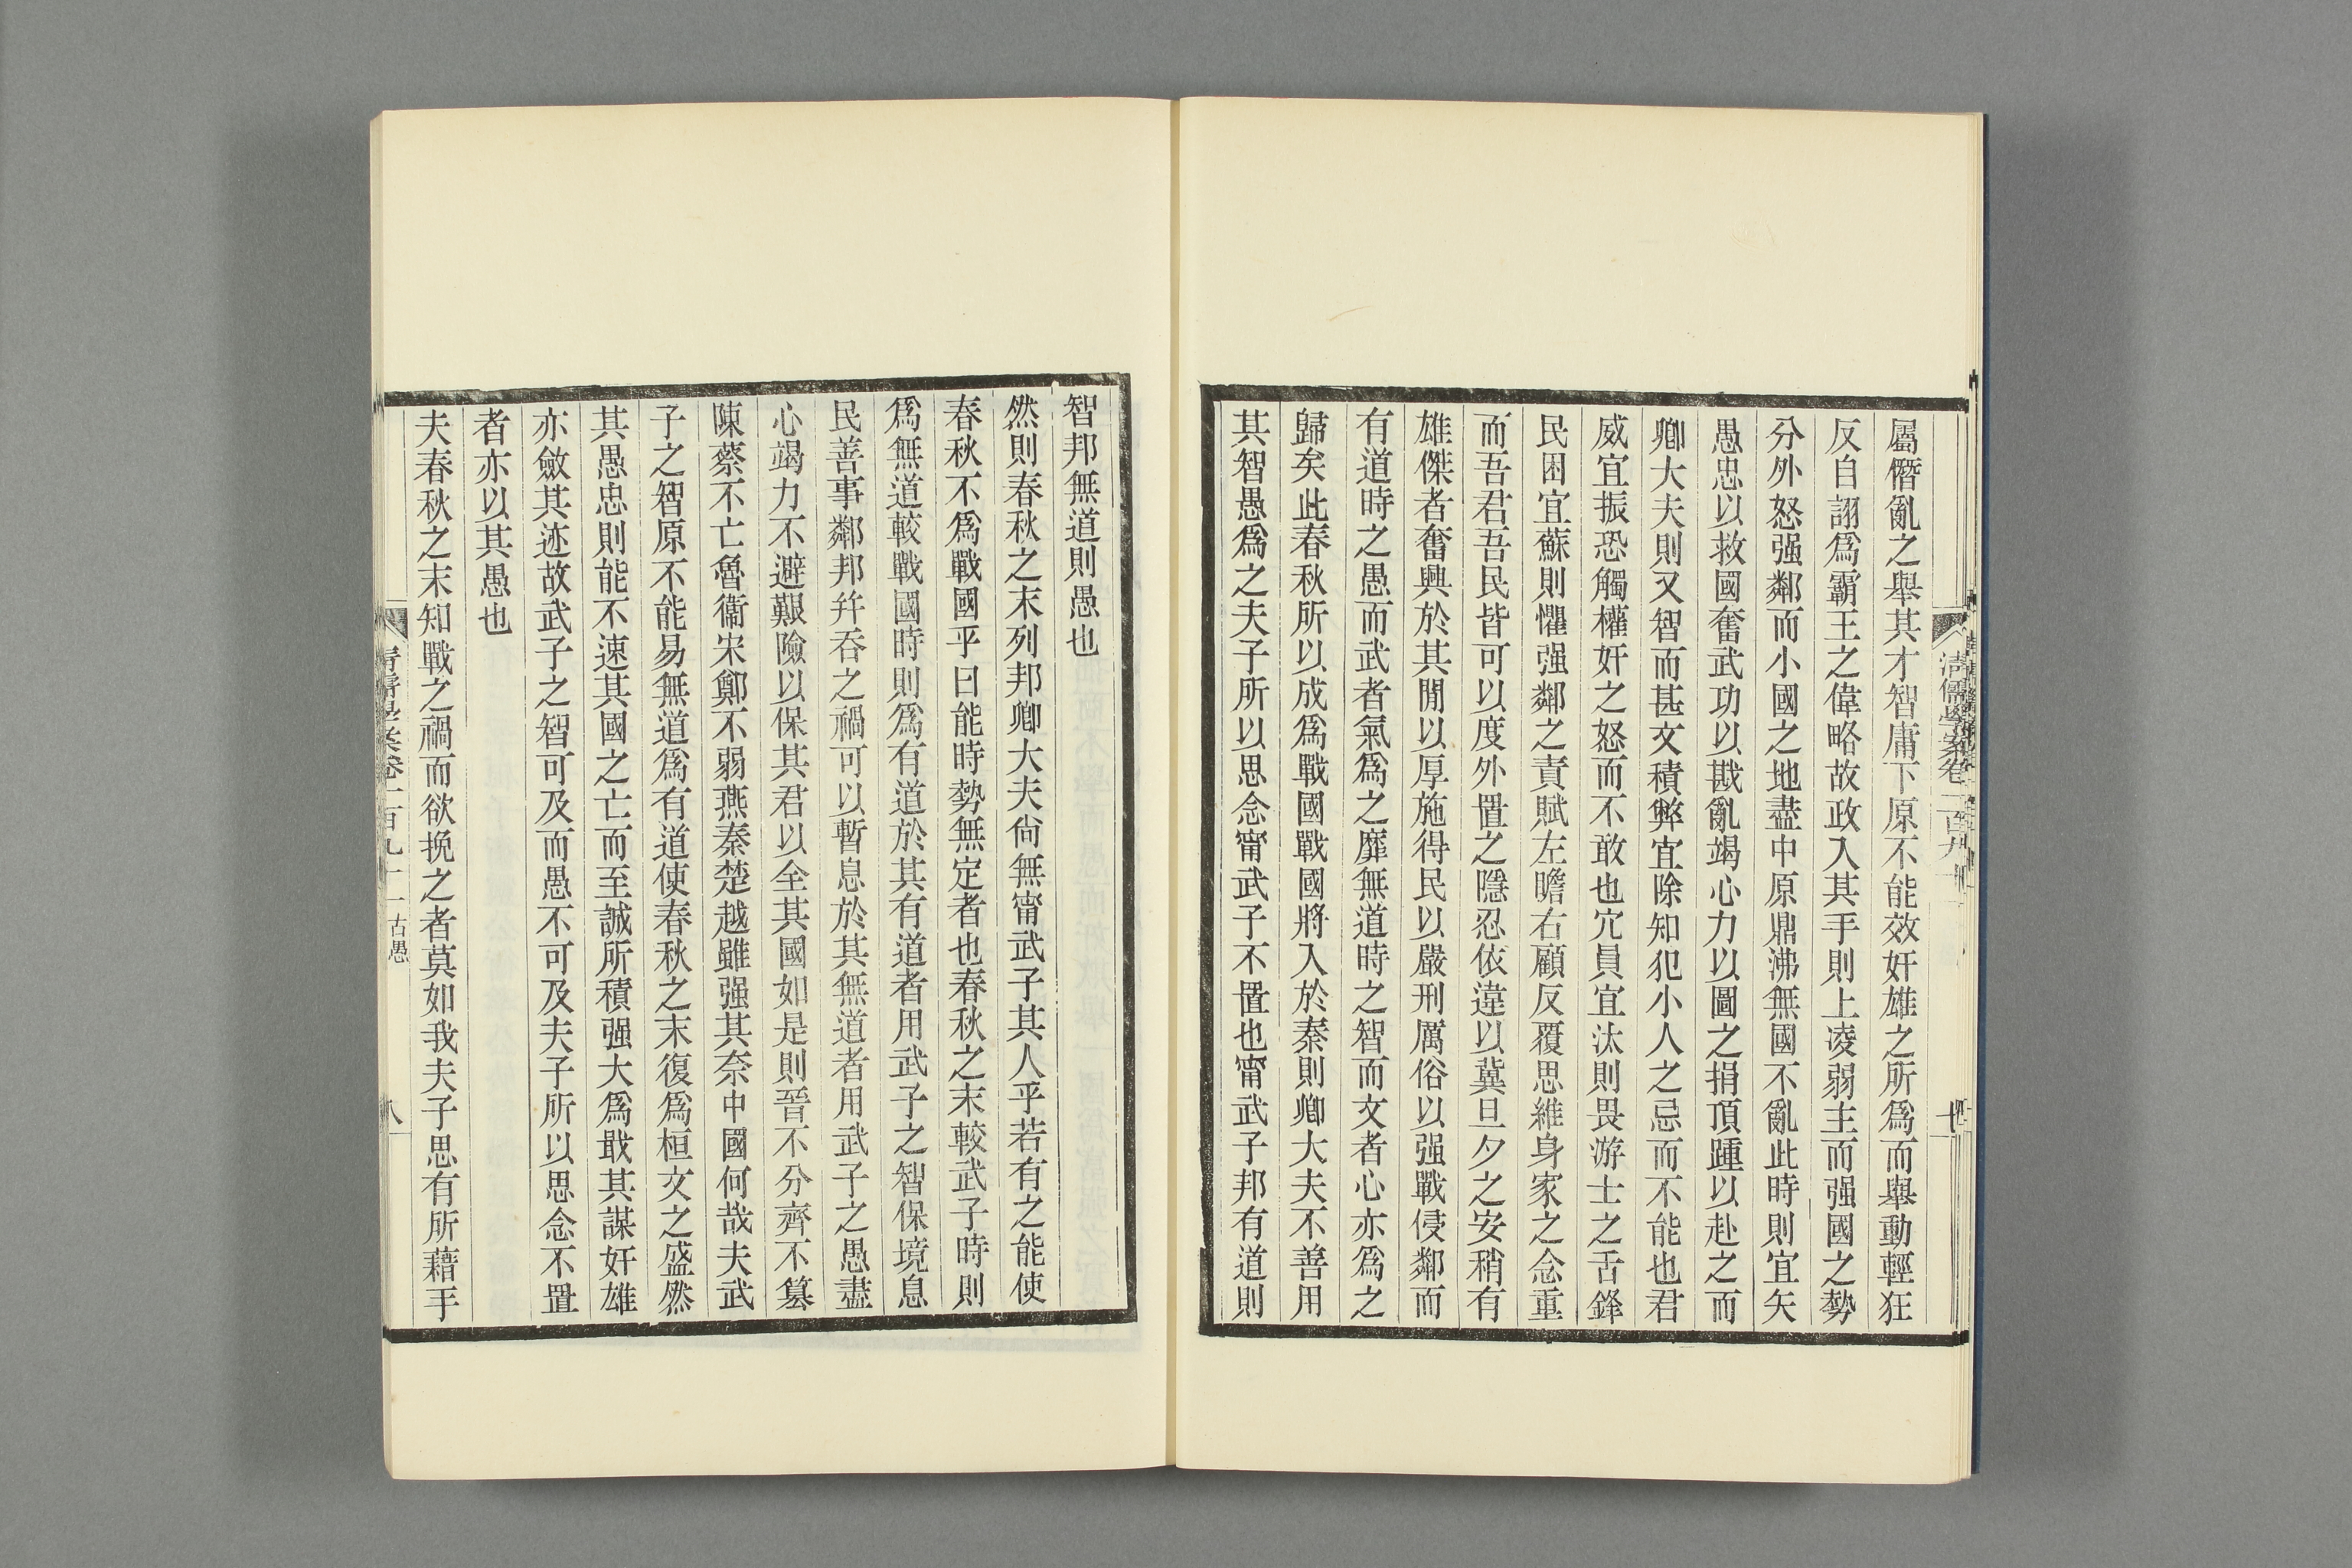 屬僭亂之舉其才智庸下原不能效奸雄之所爲而舉動輕狂
反自詡爲霸王之偉略故政入其手則上凌弱主而强國之勢
分外怒强鄰而小國之地盡中原鼎沸無國不亂此時則宜矢
愚忠以救國奮武功以戡亂竭心力以圖之捐頂踵以赴之而
卿大夫則又智而甚文積弊宜除知犯小人之忌而不能也君
威宜振恐觸權奸之怒而不敢也宂員宜汰則畏游士之舌鋒
民困宜蘇則懼强鄰之責賦左瞻右顧反覆思維身家之念重
而吾君吾民皆可以度外置之隱忍依違以冀旦夕之安稍有
雄傑者奮興於其閒以厚施得民以嚴刑厲俗以强戰侵鄰而
有道時之愚而武者氣爲之靡無道時之智而文者心亦爲之
歸矣此春秋所以成爲戰國戰國將入於秦則卿大夫不善用
其智愚爲之夫子所以思念甯武子不置也甯武子邦有道則
智邦無道則愚也
然則春秋之末列邦卿大夫尙無甯武子其人乎若有之能使
春秋不爲戰國乎曰能時勢無定者也春秋之末較武子時則
爲無道較戰國時則爲有道於其有道者用武子之智保境息
民善事鄰邦幷吞之禍可以暫息於其無道者用武子之愚盡
心竭力不避艱險以保其君以全其國如是則晉不分齊不篡
陳蔡不亡魯衞宋鄭不弱燕秦楚越雖强其奈中國何哉夫武
子之智原不能易無道爲有道使春秋之末復爲桓文之盛然
其愚忠則能不速其國之亡而至誠所積强大爲戢其謀奸雄
亦斂其迹故武子之智可及而愚不可及夫子所以思念不置
者亦以其愚也
夫春秋之末知戰之禍而欲挽之者莫如我夫子思有所藉手
清儒學案卷一百九十二 古愚 八